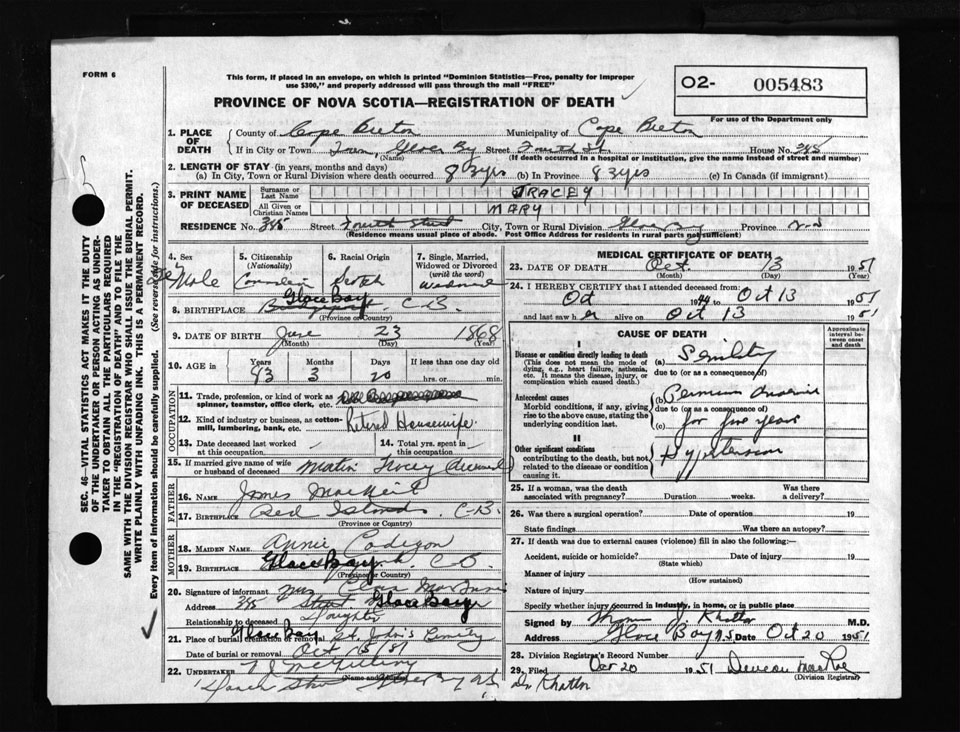 FORM 6
This form, if placed in an envelope, on which is printed "Dominion Statistics—Free, penalty for improper
use $300," and properly addressed will pass through the mail "FREE"
O2- 005483
PROVINCE OF NOVA SCOTIA—REGISTRATION OF DEATH
For use of the Department only
1. PLACE OF DEATH
County of Cape Breton Municipality of Cape Breton
If in City or Town Town, Glace Bay Street Fourth St. House No. 345
(Name) (If death occurred in a hospital or institution, give the name instead of street and number)
2. LENGTH OF STAY (in years, months and days)
(a) In City, Town or Rural Division where death occurred 83yrs (b) In Province 83yrs (c) In Canada (if immigrant)
3. PRINT NAME OF DECEASED
Surname or Last Name TRACEY
All Given or Christian Names MARY
RESIDENCE No. 345 Street Fourth Street City, Town or Rural Division Glace Bay Province N.S
(Residence means usual place of abode. Post Office Address for residents in rural parts not sufficient)
4. Sex Female
5. Citizenship (Nationality) Canadian
6. Racial Origin Scotch
7. Single, Married, Widowed or Divorced (write the word) Widowed
8. BIRTHPLACE Glace Bay C-B.
(Province or Country)
9. DATE OF BIRTH June 23 1868
(Month) (Day) (Year)
10. AGE in Years Months Days If less than one day old
83 3 20 hrs. or min.
OCCUPATION
11. Trade, profession, or kind of work as spinner, teamster, office clerk, etc.
12. Kind of industry or business, as cotton-mill, lumbering, bank, etc. Retired Housewife
13. Date deceased last worked at this occupation
14. Total yrs. spent in this occupation
15. If married give name of wife or husband of deceased Martin Tracey deceased
FATHER
16. NAME James MacNeil
17. BIRTHPLACE Red Islands C-B.
(Province or Country)
MOTHER
18. MAIDEN NAME Annie Cadigan
19. BIRTHPLACE Glace Bay C.B.
(Province or Country)
20. Signature of informant Mrs
Address 345 Street Glace Bay
Relationship to deceased Daughter
21. Place of burial, cremation or removal Glace Bay St. John's Cemetery
Date of burial or removal Oct 15/51
22. UNDERTAKER
(Name and Address)
MEDICAL CERTIFICATE OF DEATH
23. DATE OF DEATH Oct. 13 1951
(Month) (Day)
24. I HEREBY CERTIFY that I attended deceased from:
Oct 1944 Oct 13 1951
and last saw her alive on Oct 13 1951
CAUSE OF DEATH
Approximate interval between onset and death
I
Disease or condition directly leading to death
(This does not mean the mode of dying, e.g., heart failure, asthenia, etc. It means the disease, injury, or complication which caused death.)
(a) Senility
due to (or as a consequence of)
Antecedent causes
Morbid conditions, if any, giving rise to the above cause, stating the underlying condition last.
(b) Pernicious Anaemia
due to (or as a consequence of)
(c) for five years
II
Other significant conditions
contributing to the death, but not related to the disease or condition causing it.
Hypertension
25. If a woman, was the death associated with pregnancy? Duration weeks. Was there a delivery?
26. Was there a surgical operation? Date of operation 19
State findings Was there an autopsy?
27. If death was due to external causes (violence) fill in also the following:—
Accident, suicide or homicide? Date of injury 19
(State which)
Manner of injury
(How sustained)
Nature of injury
Specify whether injury occurred in Industry, in home, or in public place
Signed by J. Khattar M.D.
Address Glace Bay N.S Date Oct 20 1951
28. Division Registrar's Record Number
29. Filed Oct 20 1951
(Division Registrar)
Dr Khattar
SEC. 46—VITAL STATISTICS ACT MAKES IT THE DUTY
OF THE UNDERTAKER OR PERSON ACTING AS UNDER-
TAKER TO OBTAIN ALL THE PARTICULARS REQUIRED
IN THE "REGISTRATION OF DEATH" AND TO FILE THE
SAME WITH THE DIVISION REGISTRAR WHO SHALL ISSUE THE BURIAL PERMIT.
WRITE PLAINLY WITH UNFADING INK. THIS IS A PERMANENT RECORD.
Every item of information should be carefully supplied. (See reverse side for instructions.)